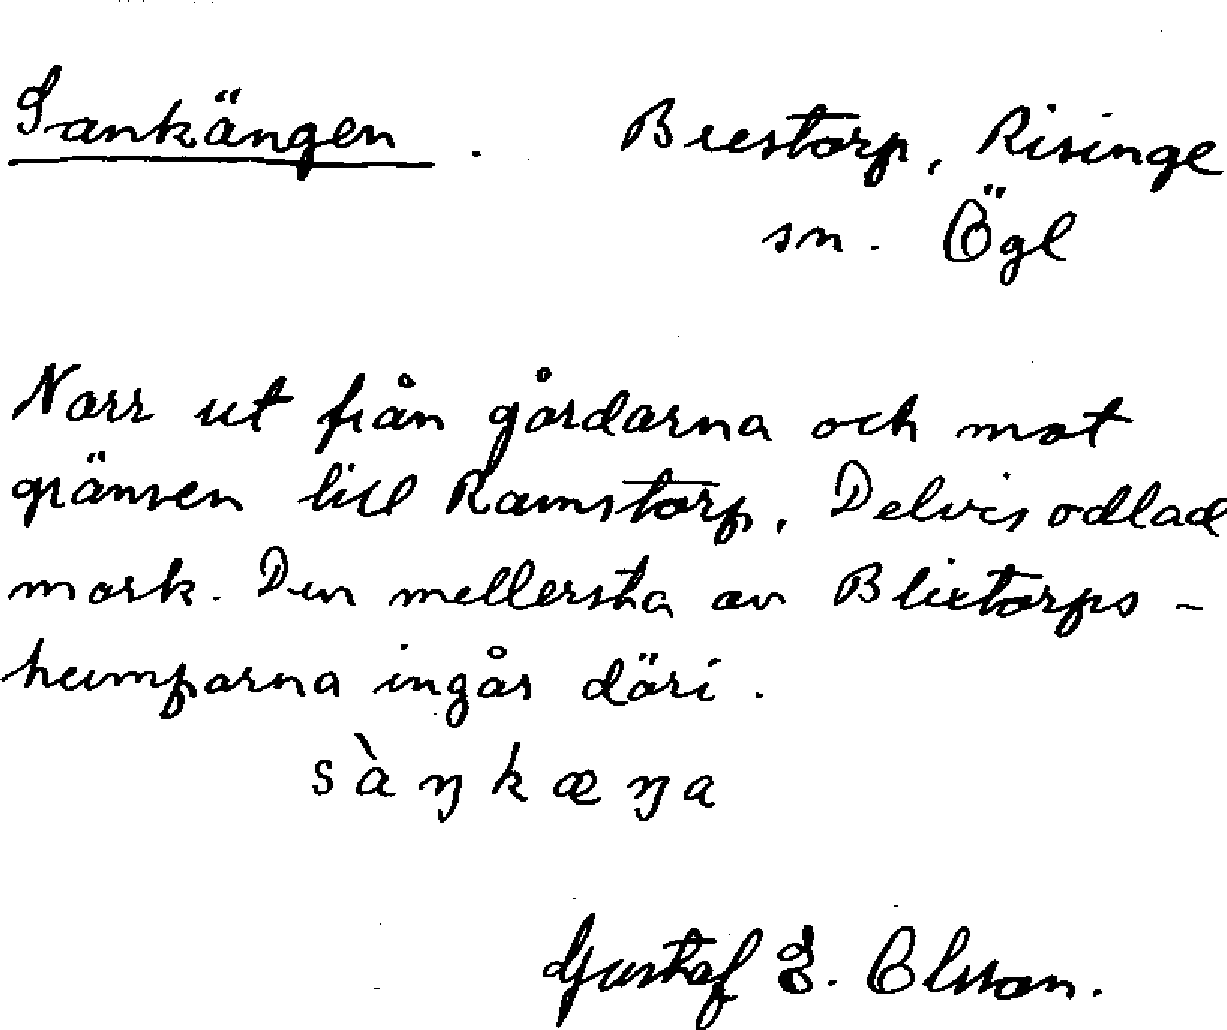 Sankängen. Brestorp, Risinge
sn. Ögl
Norr ut från gårdarna och mot
gränsen till Ramstorp. Delvis odlad
mark. Den mellersta av Blixtorps-
humparna ingår däri.
sàŋkæŋa
Gustaf E. Olsson.